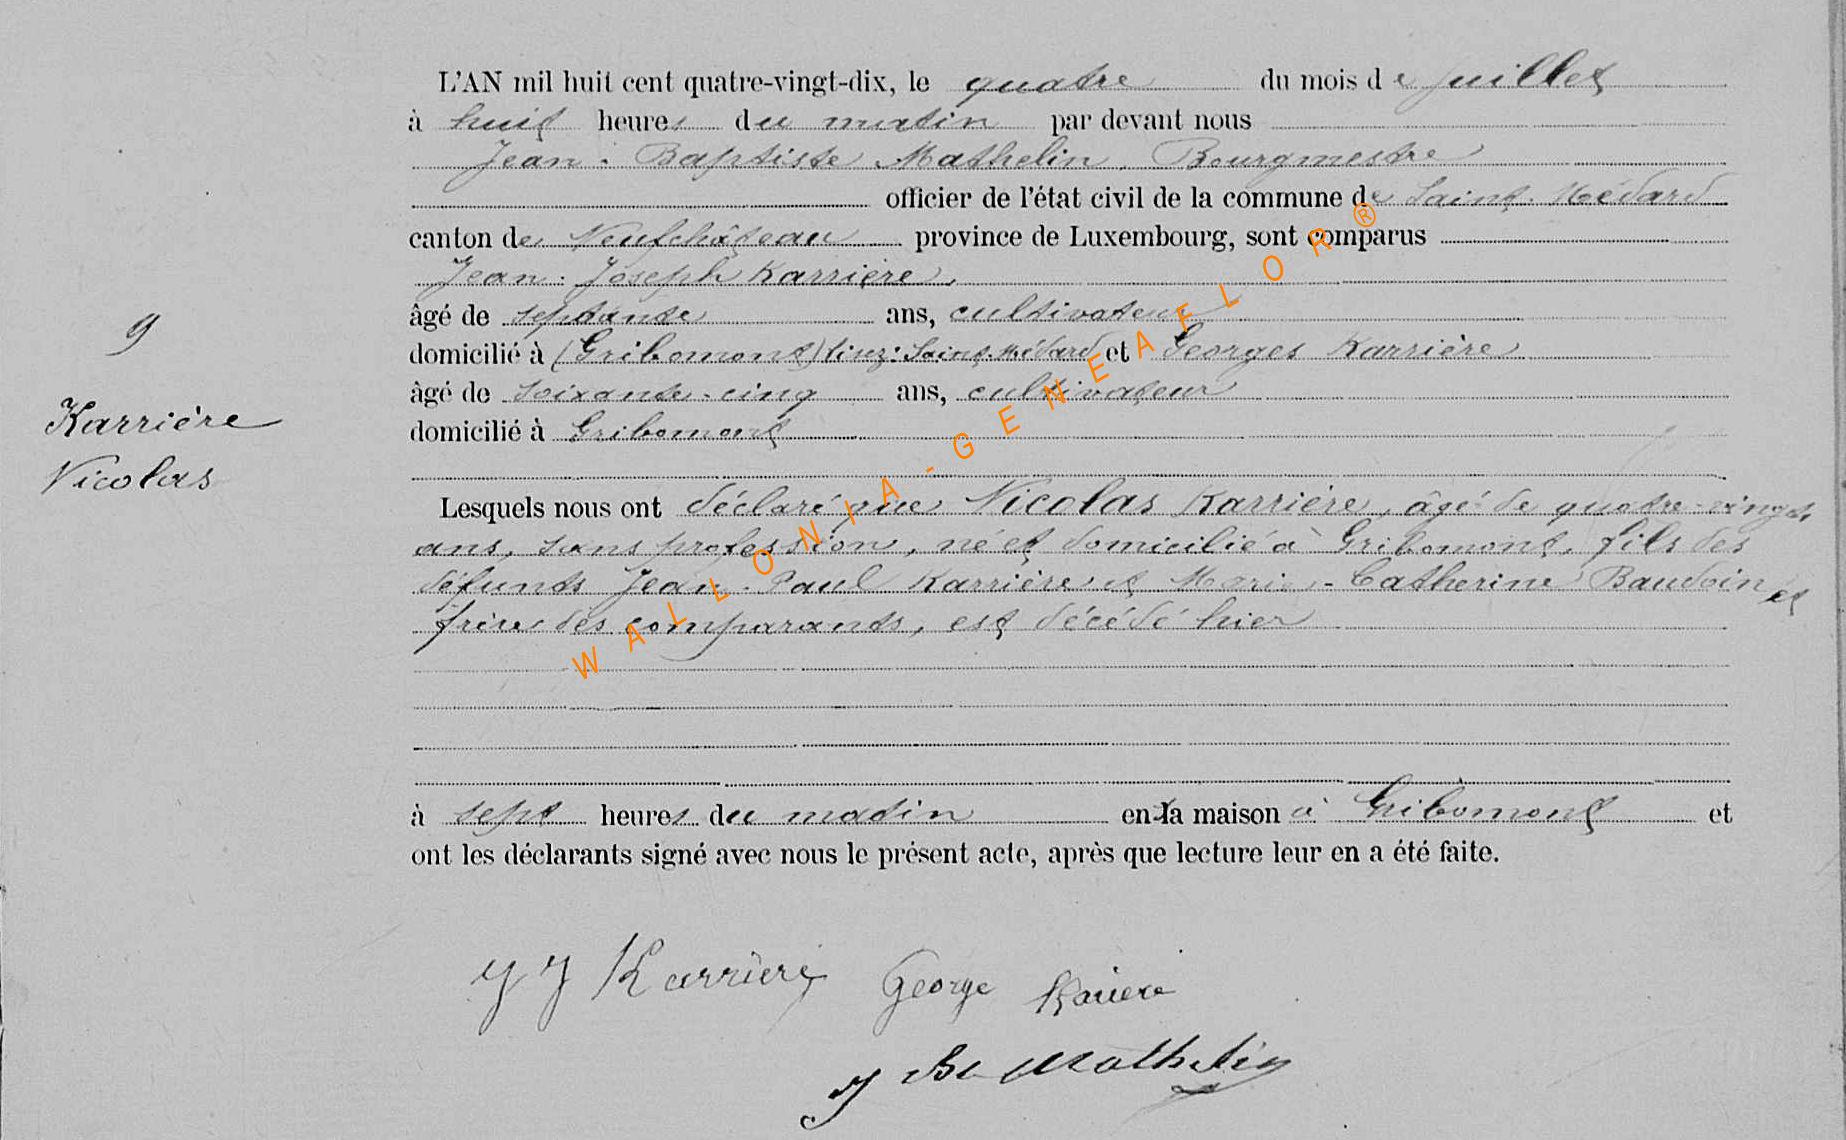 L'AN mil huit cent quatre-vingt-dix, le quatre du mois de juillet
à huit heures du matin par devant nous
Jean-Baptiste Mathelin, Bourgmestre
officier de l'état civil de la commune de Saint-Médard
canton de Neufchâteau province de Luxembourg, sont comparus
Jean-Joseph Karrière,
âgé de septante ans, cultivateur
domicilié à (Gribomont) lisez: Saint-Médard et Georges Karrière
âgé de soixante-cinq ans, cultivateur
domicilié à Gribomont
9
Karrière
Nicolas
Lesquels nous ont déclaré que Nicolas Karrière, âgé de quatre-vingts
ans, sans profession, né et domicilié à Gribomont, fils des
défunts Jean-Paul Karrière et Marie-Catherine Baudoin et
frère des comparants, est décédé hier
à sept heures du matin en la maison à Gribomont et
ont les déclarants signé avec nous le présent acte, après que lecture leur en a été faite.
J J Karrière George Kariere
J Bte Mathelin
WALLONIA-GENEAFLOR®